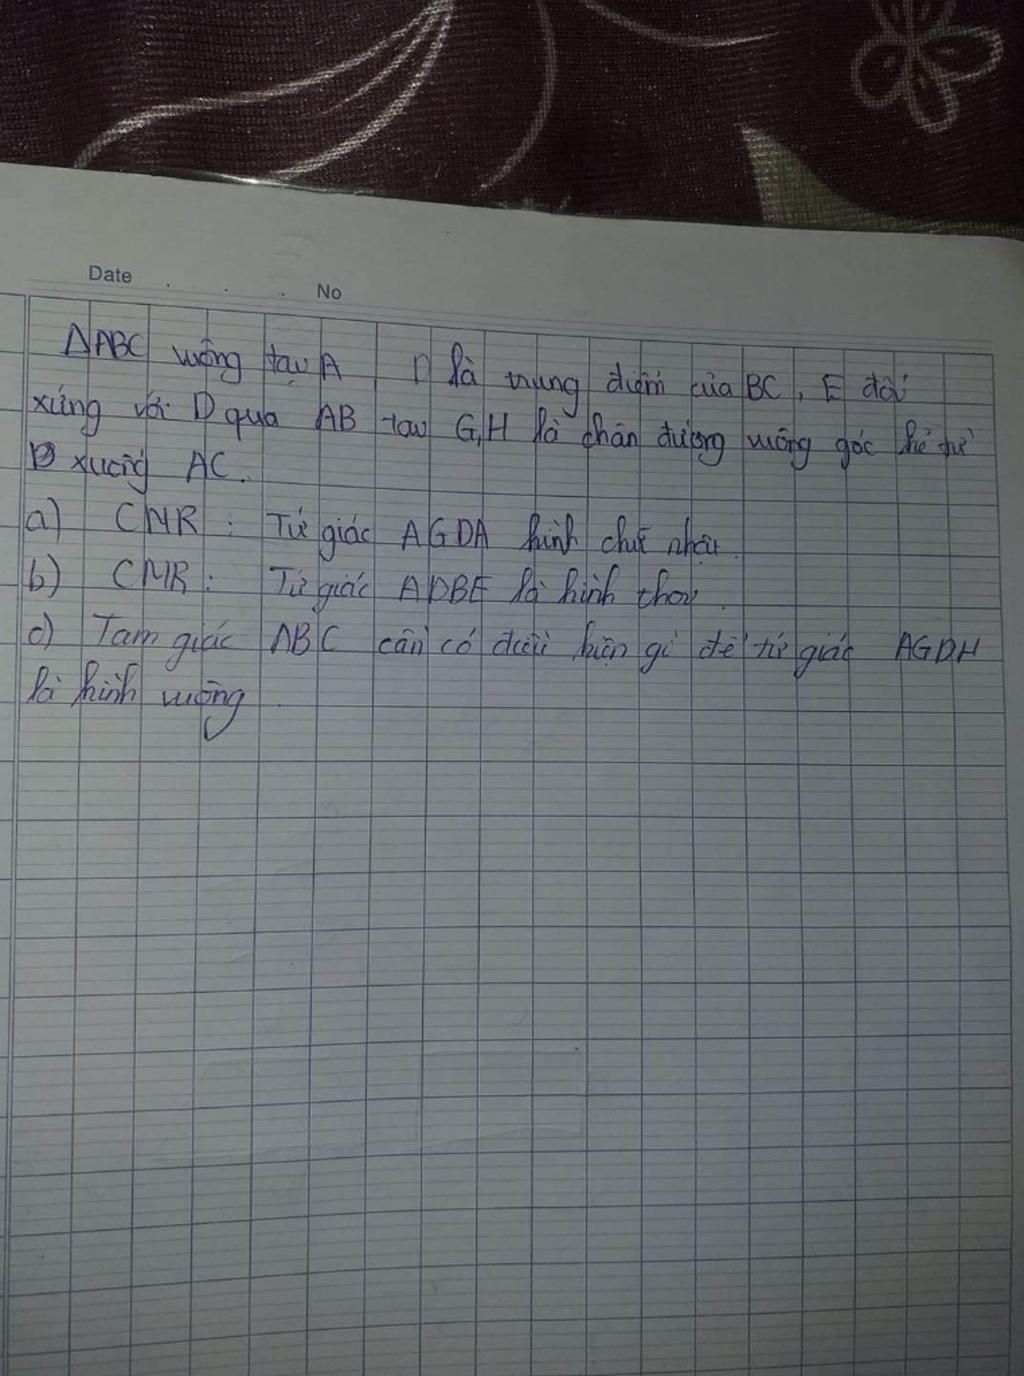 Date . . . No
ΔABC vuông tại A, D là trung điểm của BC, E đối
xứng với D qua AB tại G, H là chân đường vuông góc kẻ từ
D xuống AC.
a) CNR: Tứ giác AGDA hình chữ nhật.
b) CMR: Tứ giác ADBE là hình thoi.
c) Tam giác ABC cần có điều kiện gì để tứ giác AGDH
là hình vuông.